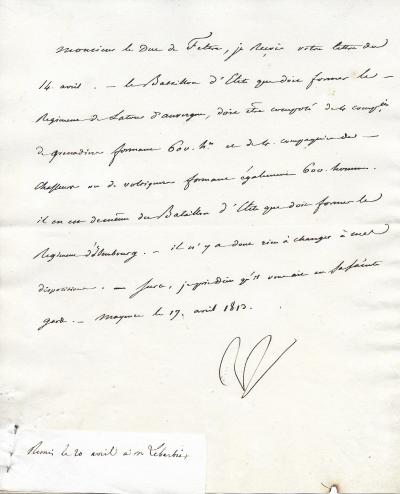 Monsieur le Duc de Feltre, je reçois votre lettre du
14 avril. — le Bataillon d'Elite que doit former le
Régiment de Latour d'auvergne, doit être composé de 4 comp.es
de grenadiers formant 600. h.es et de 4. compagnies de
Chasseurs ou de voltigeurs formant également 600. hommes.
il en est de même du Bataillon d'Elite que doit former le
Régiment d'Isembourg. — il n'y a donc rien à changer à mes
dispositions. — Sur ce, je prie Dieu qu'il vous ait en Sa Sainte
garde. — mayence le 17. avril 1813.
Remis le 20 avril à M